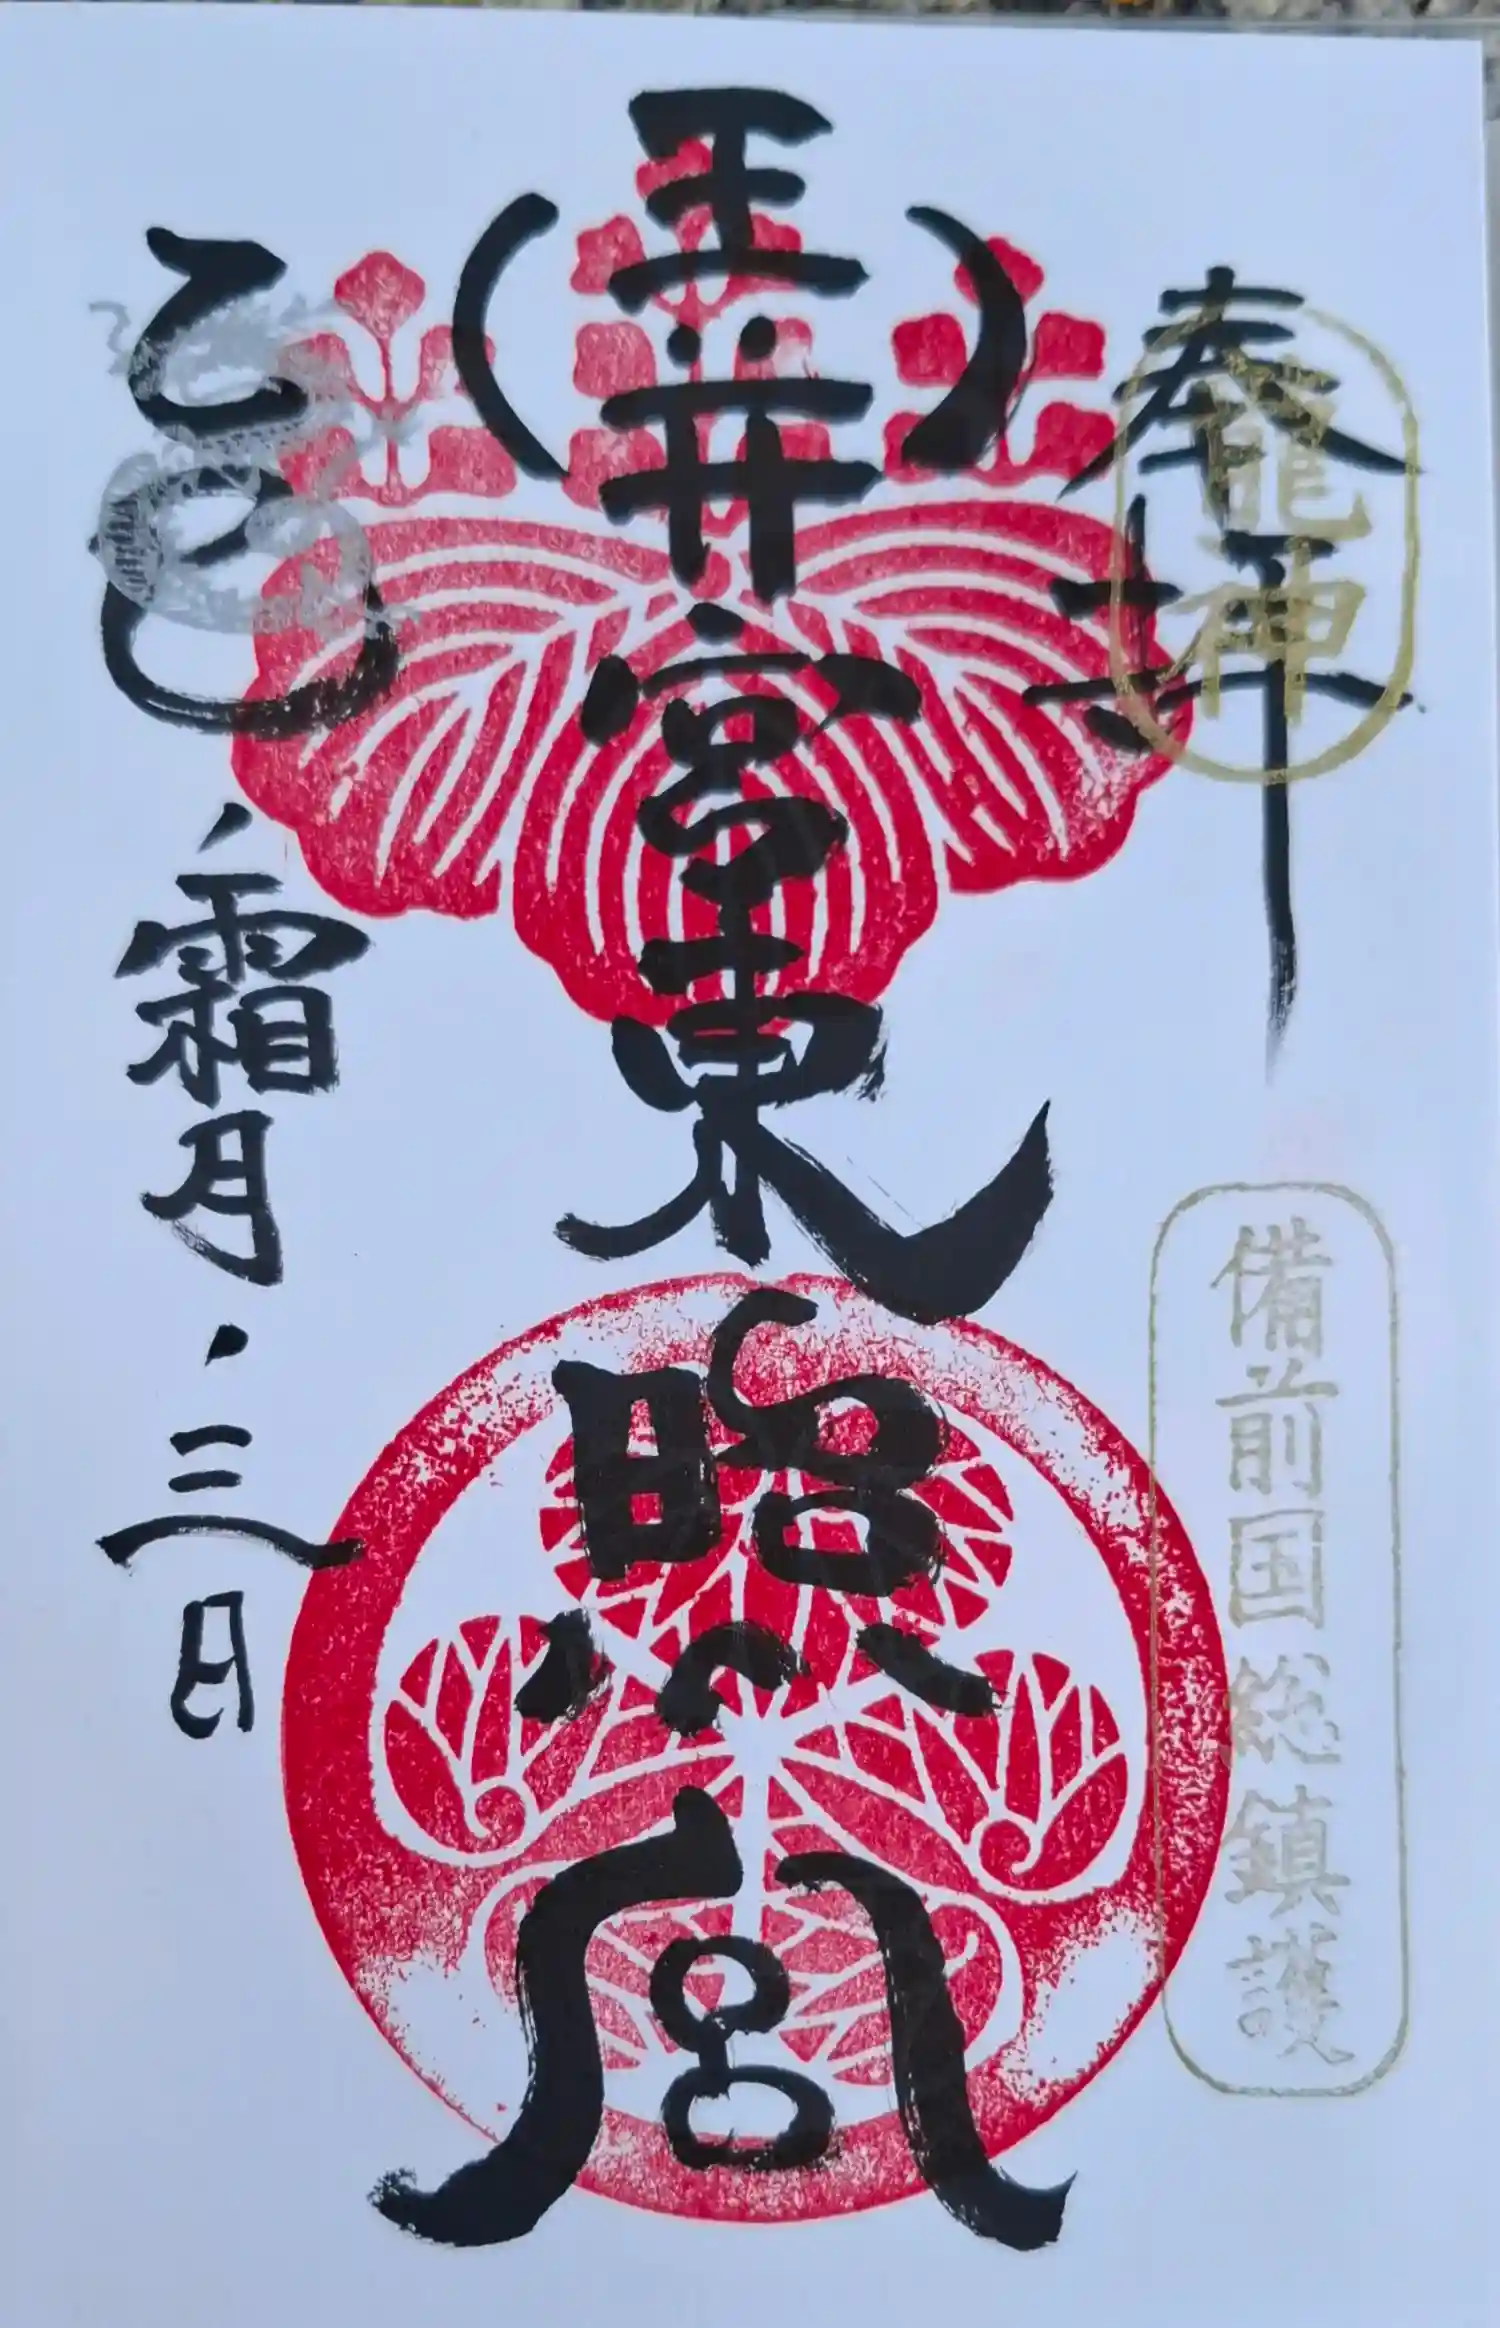 奉拝
龍神
備前国総鎮護
玉井宮東照宮
乙巳、霜月、三日